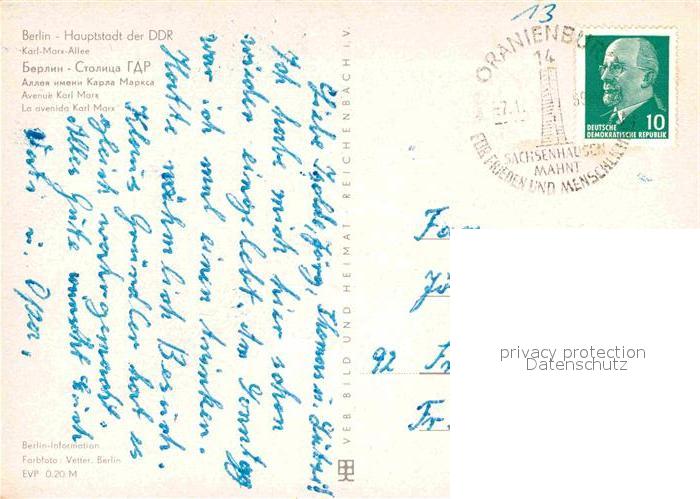 Berlin - Hauptstadt der DDR
Karl-Marx-Allee
Берлин - Столица ГДР
Аллея имени Карла Маркса
Avenue Karl Marx
La avenida Karl Marx
Liebe
Ich habe mich hier schon
wieder eingelebt. Am Sonntag
war ich mit einen trinken.
Hatte nähmlich Besuch.
Klaus hat es
gleich
Alles Gute wünscht Euch
u. Opa.
Berlin-Information
Farbfoto: Vetter, Berlin
EVP 0.20 M
VEB BILD UND HEIMAT · REICHENBACH i.V.
13
ORANIENBUR
14
SACHSENHAUSEN
MAHNT
FÜR FRIEDEN UND MENSCHLICH
DEUTSCHE
DEMOKRATISCHE REPUBLIK
10
92
Fr.
privacy protection
Datenschutz